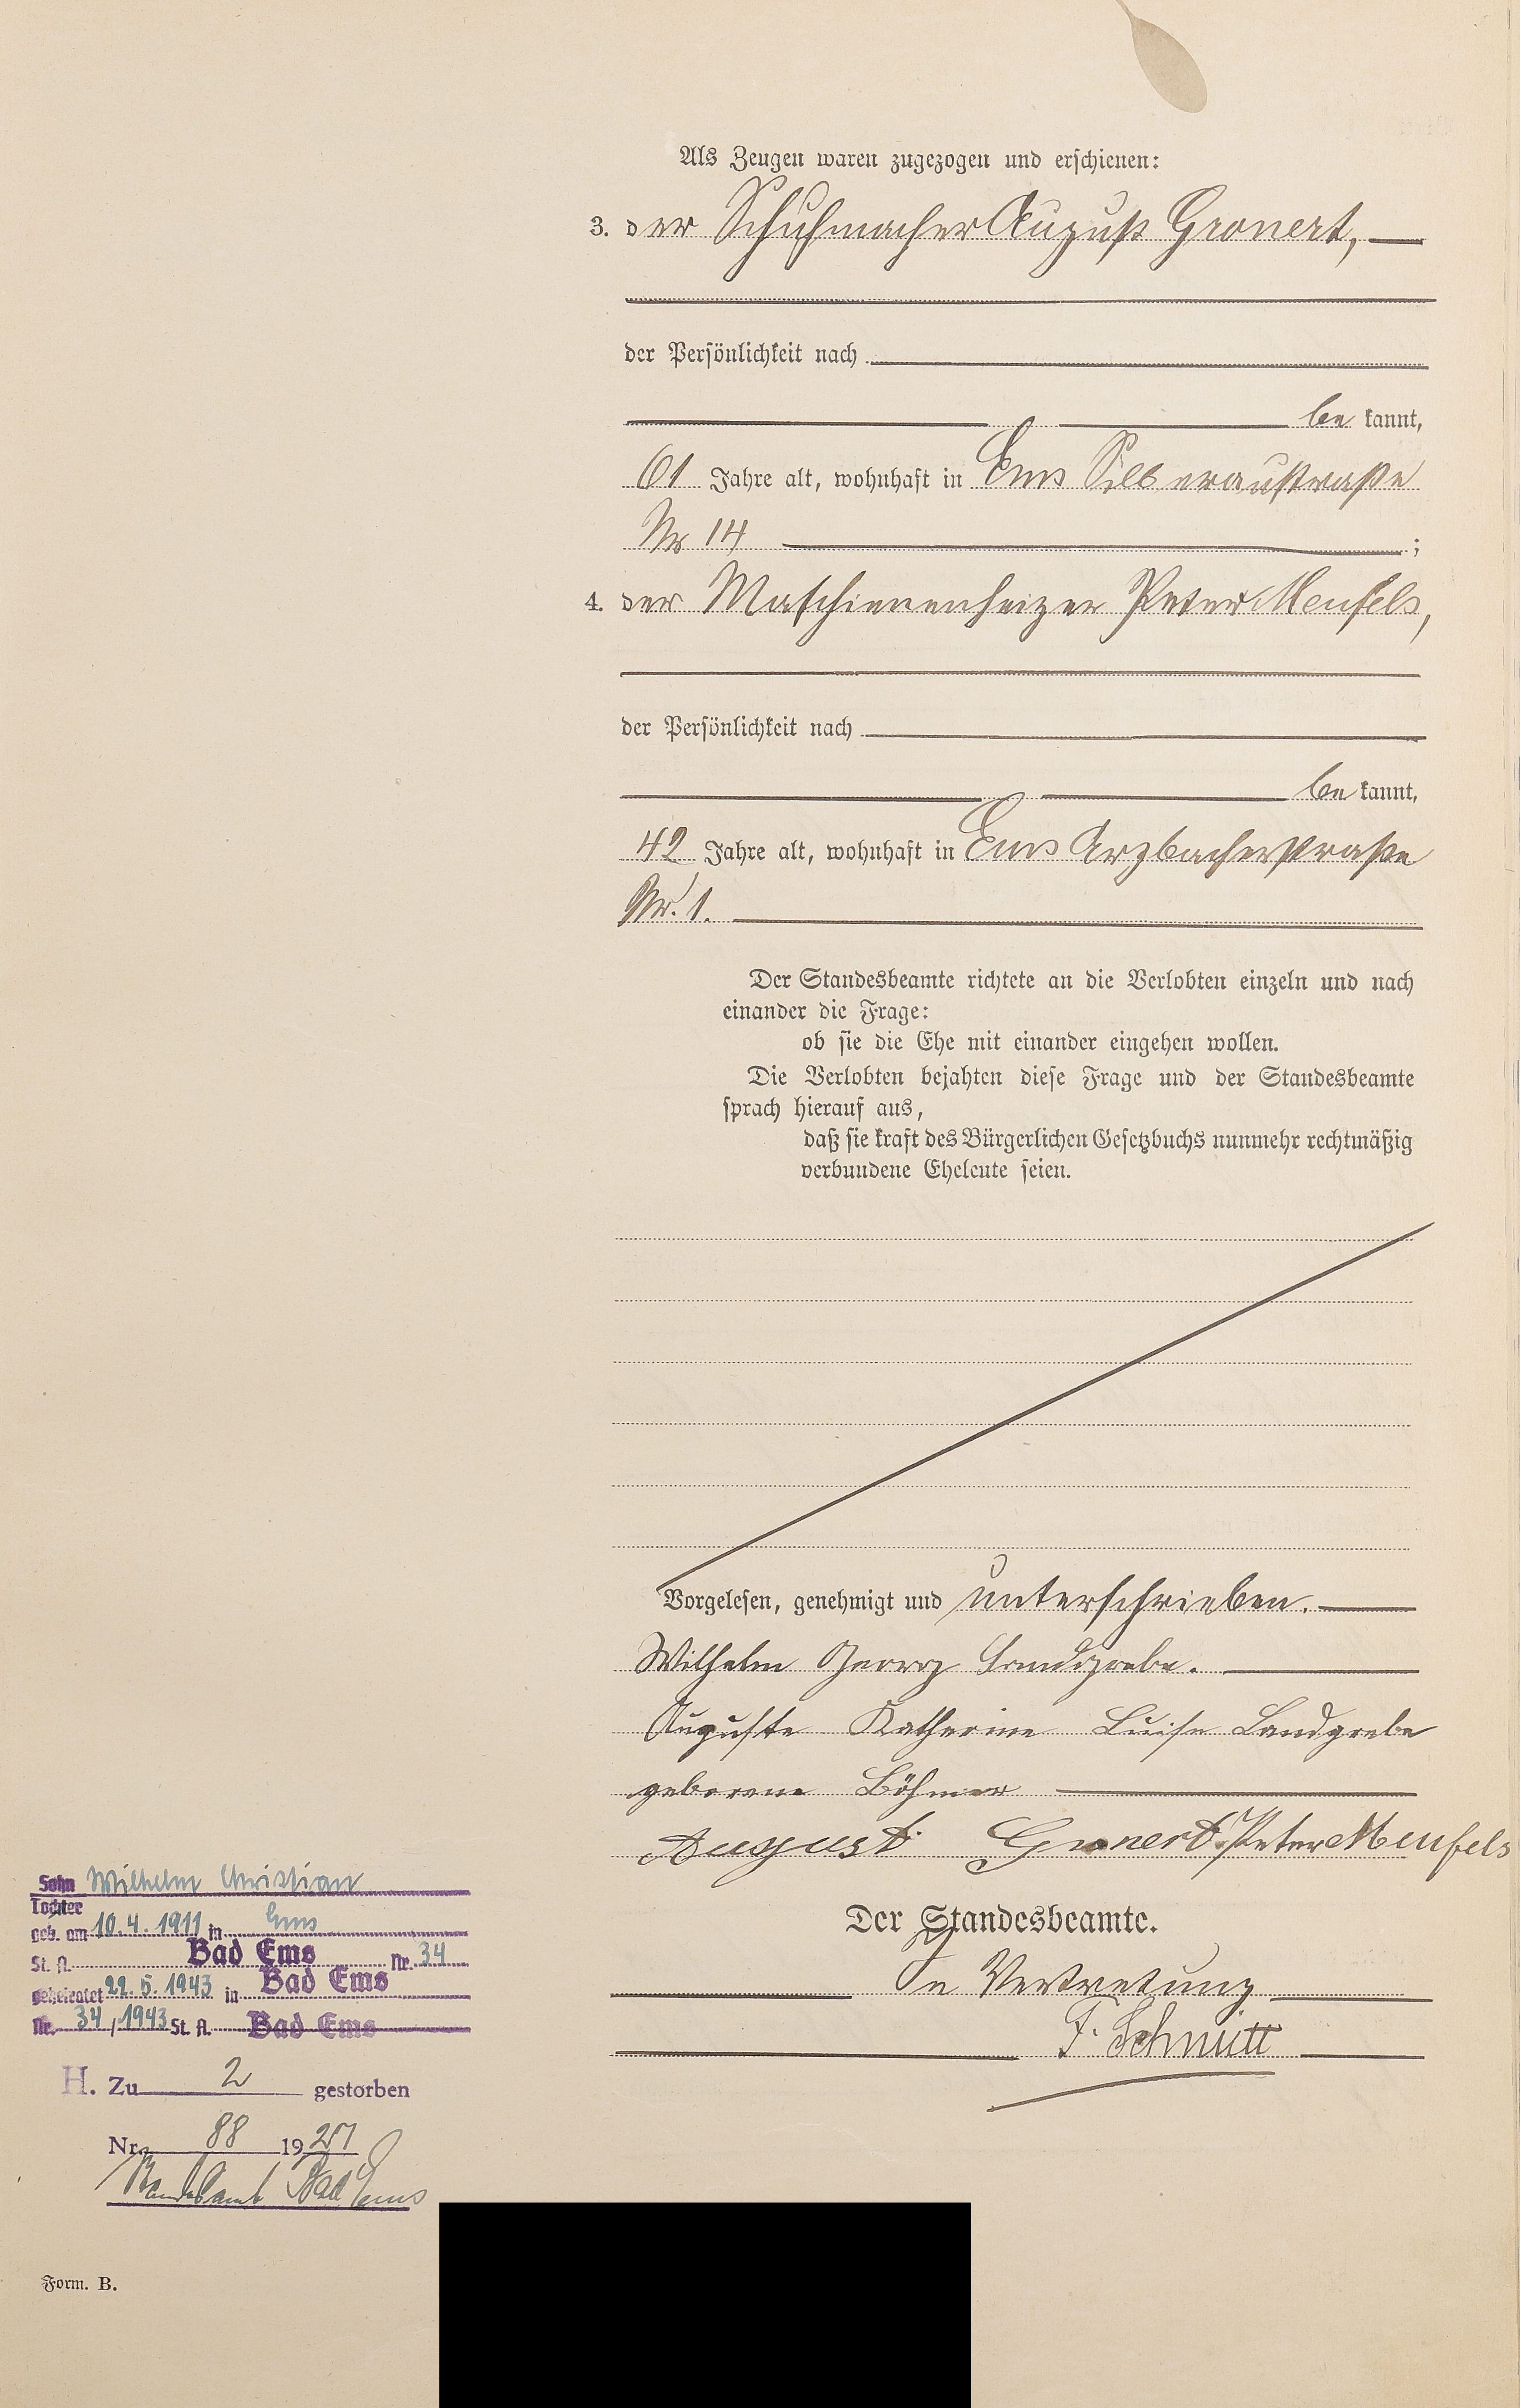 Als Zeugen waren zugezogen und erschienen:
3. der Schuhmacher August Gronert,
der Persönlichkeit nach
be kannt,
61 Jahre alt, wohnhaft in Ems Silberaustraße
Nr 14 ;
4. der Maschienenheizer Peter Meufels,
der Persönlichkeit nach
be kannt,
42 Jahre alt, wohnhaft in Ems Arzbacherstraße
Nr. 1.
Der Standesbeamte richtete an die Verlobten einzeln und nach
einander die Frage:
ob sie die Ehe mit einander eingehen wollen.
Die Verlobten bejahten diese Frage und der Standesbeamte
sprach hierauf aus,
daß sie kraft des Bürgerlichen Gesetzbuchs nunmehr rechtmäßig
verbundene Eheleute seien.
Vorgelesen, genehmigt und unterschrieben.
Wilhelm Georg Landgrebe.
Auguste Katherine Luise Landgrebe
geborene Böhmer
August Gronert. Peter Meufels
Der Standesbeamte.
In Vertretung
F. Schmitt
Sohn Wilhelm Christian
Tochter
geb. am 10.4.1911 in Ems
St. A. Bad Ems Nr. 34
geheiratet 22.5.1943 in Bad Ems
Nr. 34 / 1943 St. A. Bad Ems
H. Zu 2 gestorben
Nr. 88 1927
Standesamt Bad Ems
Form. B.